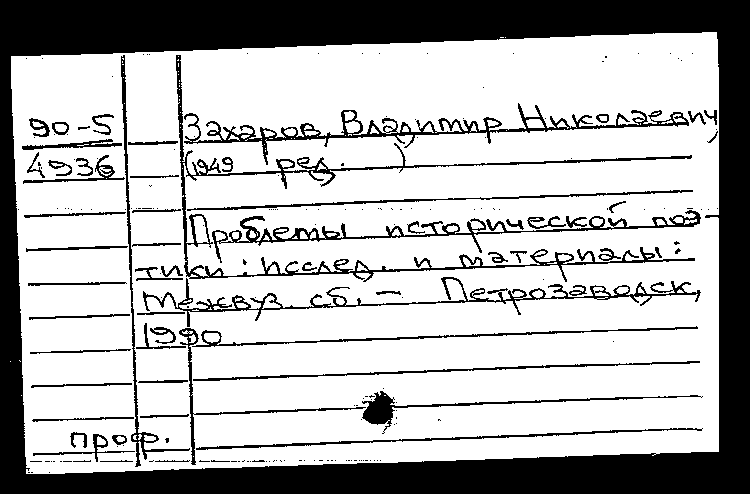 90-5 Захаров, Владимир Николаевич
4936 (1949 ред. )
Проблемы исторической поэ-
тики: исслед. и материалы:
Межвуз. сб. - Петрозаводск,
1990.
проф.